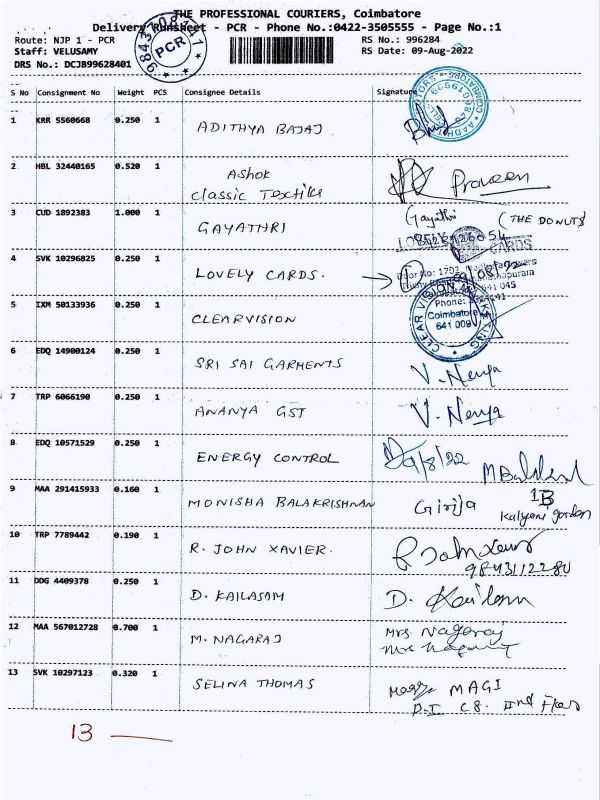 THE PROFESSIONAL COURIERS, Coimbatore
Delivery Runsheet - PCR - Phone No.:0422-3505555 - Page No.:1
Route: NJP 1 - PCR
RS No.: 996284
Staff: VELUSAMY
RS Date: 09-Aug-2022
DRS No.: DCJB99628401
PCR
S No Consignment No Weight PCS Consignee Details Signature
1 KRR 5560668 0.250 1 ADITHYA BAJAJ
2 HBL 32440165 0.520 1 Ashok
Classic Textile Praveen
3 CUD 1892383 1.000 1 GAYATHRI Gayathri (THE DONUTS
LOVELY CARDS
4 SVK 10296825 0.250 1 LOVELY CARDS.
641 045
5 IXM 50133936 0.250 1 CLEARVISION
CLEAR VISION
Phone:
Coimbatore
641 009
6 EDQ 14900124 0.250 1 SRI SAI GARMENTS V. Nenya
7 TRP 6066190 0.250 1 ANANYA GST V. Nenya
8 EDQ 10571529 0.250 1 ENERGY CONTROL 9/8/22
9 MAA 291415933 0.160 1 MONISHA BALAKRISHNAN Girija 1B
Kalyani garden
10 TRP 7789442 0.190 1 R. JOHN XAVIER.
11 DDG 4409378 0.250 1 D. KAILASAM D. Kailasam
12 MAA 567012728 0.700 1 M. NAGARAJ Mrs Nagaraj
13 SVK 10297123 0.320 1 SELINA THOMAS MAGI
D.I C8. IInd Floor
13